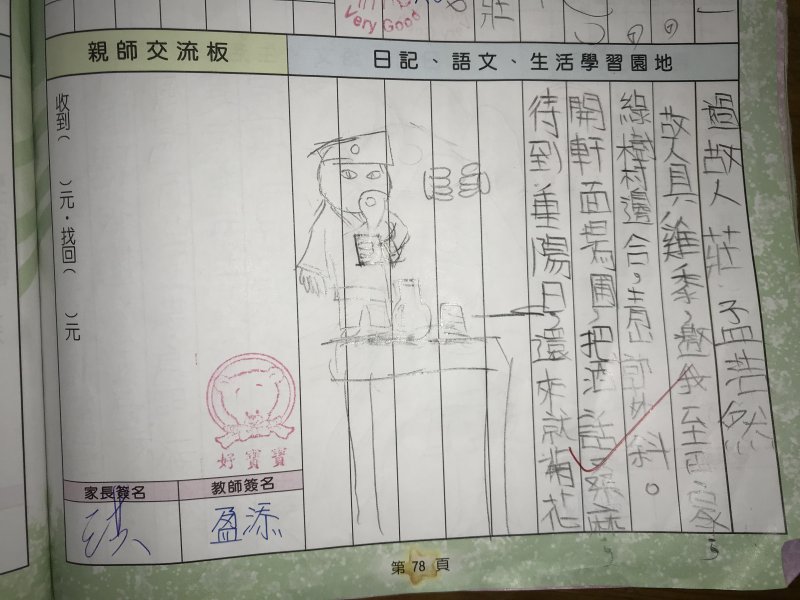 Very Good
莊
親師交流板
日記、語文、生活學習園地
過故人莊 孟浩然
故人具雞黍,邀我至田家,
綠樹村邊合,青山郭外斜。
開軒面場圃,把酒話桑麻,
待到重陽日,還來就菊花
收到( )元,找回( )元
好寶寶
家長簽名
教師簽名
盈添
第 78 頁